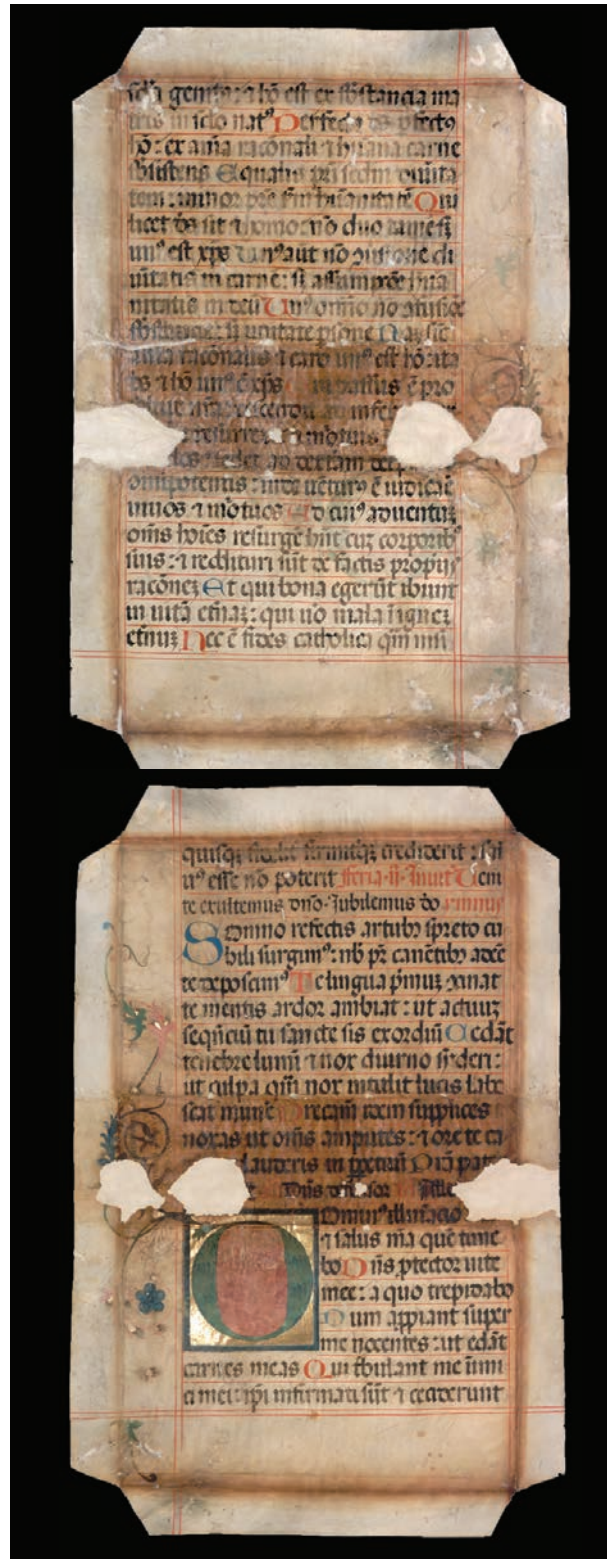 scła genitus: ⁊ hō est ex sb̄stancia ma
tris in sclo natꝰ Perfectꝰ ds pfectꝰ
hō: ex aīa racōnali ⁊ hūana carne
sb̄sistens Equalis pri scdm diuīta
tem: minor pre scdm hūanitatē Qui
licet ds sit ⁊ homo: nō duo tamē sꝫ
unꝰ est xp̄s Unꝰ aūt nō 9uersione di
uītatis in carne: sꝫ assumptōe hūa
nitatis in deū Unꝰ omīo nō 9fusiōe
sb̄stancie: sꝫ unitate psone Naꝫ sic
aīa racōnalis ⁊ caro unꝰ est hō: ita
ds ⁊ hō unꝰ ē xp̄s Qui passus ē pro
salute
resurrex mortuis
sedet ad dexteram dei
omīpotentis: inde uēturꝰ ē iudicāē
uiuos ⁊ mōtuos Ad cuiꝰ aduentuꝫ
om̄s hoīes resurgē hn̄t cuꝫ corporibꝰ
suis: ⁊ reddituri sūt de factis propriis
racōneꝫ Et qui bona egerūt ibunt
in uitā etn̄aꝫ: qui uō mala ī igneꝫ
etn̄uꝫ Hec ē fides catholica qm̄ nisi
quisqꝫ fidelit firmitqꝫ crediderit: sal
uꝰ esse nō poterit Feria ii Inuit Ueni
te exultemus dn̄o Iubilemus do ymnus
Somno refectis artubꝰ spreto cu
bili surgimꝰ: nb̄ pr̄ canētibꝰ adee
te deposcimꝰ Te lingua pꝛimuꝫ 9cinat
te mentis ardor ambiat: ut actuuꝫ
seqn̄ciū tu sancte sis exordiū Cedāt
tenebre lumī ⁊ nox diurno sideri:
ut culpa qm̄ nox intulit lucis labe
scat mun̄e Precam̄ idem supplices
noxas ut om̄s amputes: ⁊ ore te ca
lauderis in ppetuū P̄ta pat
Dn̄s defensor
Dominꝰ illuīacio
⁊ salus m̄a quē time
bo Dn̄s ptector uite
mee: a quo trepidabo
Dum appiant super
me nocentes: ut edāt
carnes meas Qui tb̄ulant me inimi
ci mei: ip̄i infirmati sūt ⁊ ceciderunt